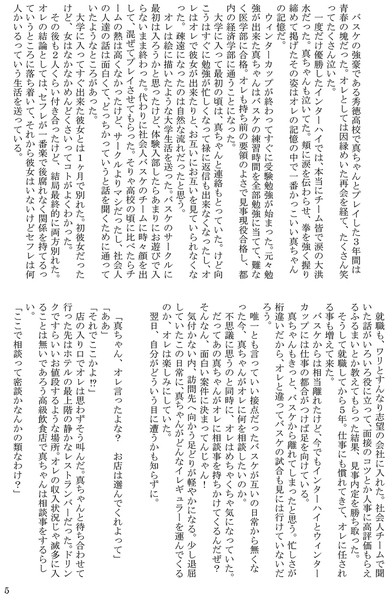 バスケの強豪である秀徳高校で真ちゃんとプレイした3年間は
青春の塊だった。オレとしては因縁めいた再会を経て、たくさん笑
ってたくさん泣いた。
一度だけ優勝したインターハイでは、本当にチーム皆で涙の大洪
水だった。真ちゃんも泣いてた。頬に涙を伝わらせ、拳を強く握り
締めて掲げたその姿はオレの記憶の中で一番かっこいい真ちゃん
の記憶だ。
ウィンターカップが終わってすぐに受験勉強が始まった。元々勉
強が出来た真ちゃんはバスケの練習時間を全部勉強に当てて、難な
く医学部に合格。オレも持ち前の要領のよさで見事現役合格し、都
内の経済学部に通うことになった。
大学に入って最初の頃は、真ちゃんと連絡もとっていた。けど向
こうはすぐに勉強が忙しくなって禄に返信も出来なくなったし、オ
レはオレで彼女が出来たりと、お互いにお互いを見ていられなくな
った。疎遠になったのは自然な流れだったと思う。
オレは絵に描いたような大学生活を送っていた。バスケのサークルに
最初は入ろうかと思ったけど、体験入部したらあまりにお遊びで入
らないまま終わった。代わりに社会人バスケのチームに時々顔を出
して、混ぜてプレイさせてもらった。そりゃ高校の頃に比べたらチ
ームの熱は高くなかったけど、サークルよりマシだったし、社会人
の人達の話は面白くて、どっちかっていうと話を聞くために通って
いたようなところがあった。
大学に入ってすぐ出来た彼女とは1ヶ月で別れた。初彼女だった
けど、女はなかなかめんどくさいってコトがよくわかった。
その後も2人くらい付き合ったけど、結局最終的に両方別れた。
オレの結論としてはセフレが一番楽で後腐れなく関係を持てるっ
ていうところに落ち着いて、それから彼女はいないけどセフレは何
人かいるっていう生活を送っている。
就職も、ワリとすんなり志望の会社に入れた。社会人チームで聞
いた話がいろいろ役に立って、面接のコツとか人事に高評価もらえ
るふるまいとか教えてもらった結果、見事内定を勝ち取った。
そうして就職してから5年。仕事にも慣れてきて、オレに任され
る事も増えて来た。
バスケからは相当離れたけど、今でもインターハイとウィンター
カップには仕事の都合がつけば足を向けている。
真ちゃんもきっと、バスケから離れてしまったと思う。忙しさが
桁違いだから、オレと違ってバスケの試合も見には行けていないだ
ろう。
唯一とも言っていい接点だったバスケが互いの日常から無くな
った今、真ちゃんがオレに何を相談したいのか。
不思議に思うのと同時に、オレはめちゃくちゃ気になっていた。
だってあの真ちゃんがオレに相談事を持ちかけてくるんだぜ?
そんなん、面白い案件に決まってんじゃん!
気付かない内、訪問先へ向かう足どりが軽やかになる。少し退屈
していたこの日常に、真ちゃんがどんなイレギュラーを運んでくる
のか、オレは楽しみにしていた。
翌日、自分がどういう目に遭うかも知らずに。
「真ちゃん、オレ言ったよな? お店は選んでくれよって」
「ああ」
「それでここかよ!?」
店の入り口でオレは思わずそう叫んだ。真ちゃんと待ち合わせて
行った先はホテルの最上階の静かなレストランバーだった。ドリン
クですらいいお値段するような場所。オレの収入状況じゃ滅多に入
ることは無いであろう高級飲食店で真ちゃんは相談事をするらし
い。
「ここで相談って密談かなんかの類なわけ?」
5